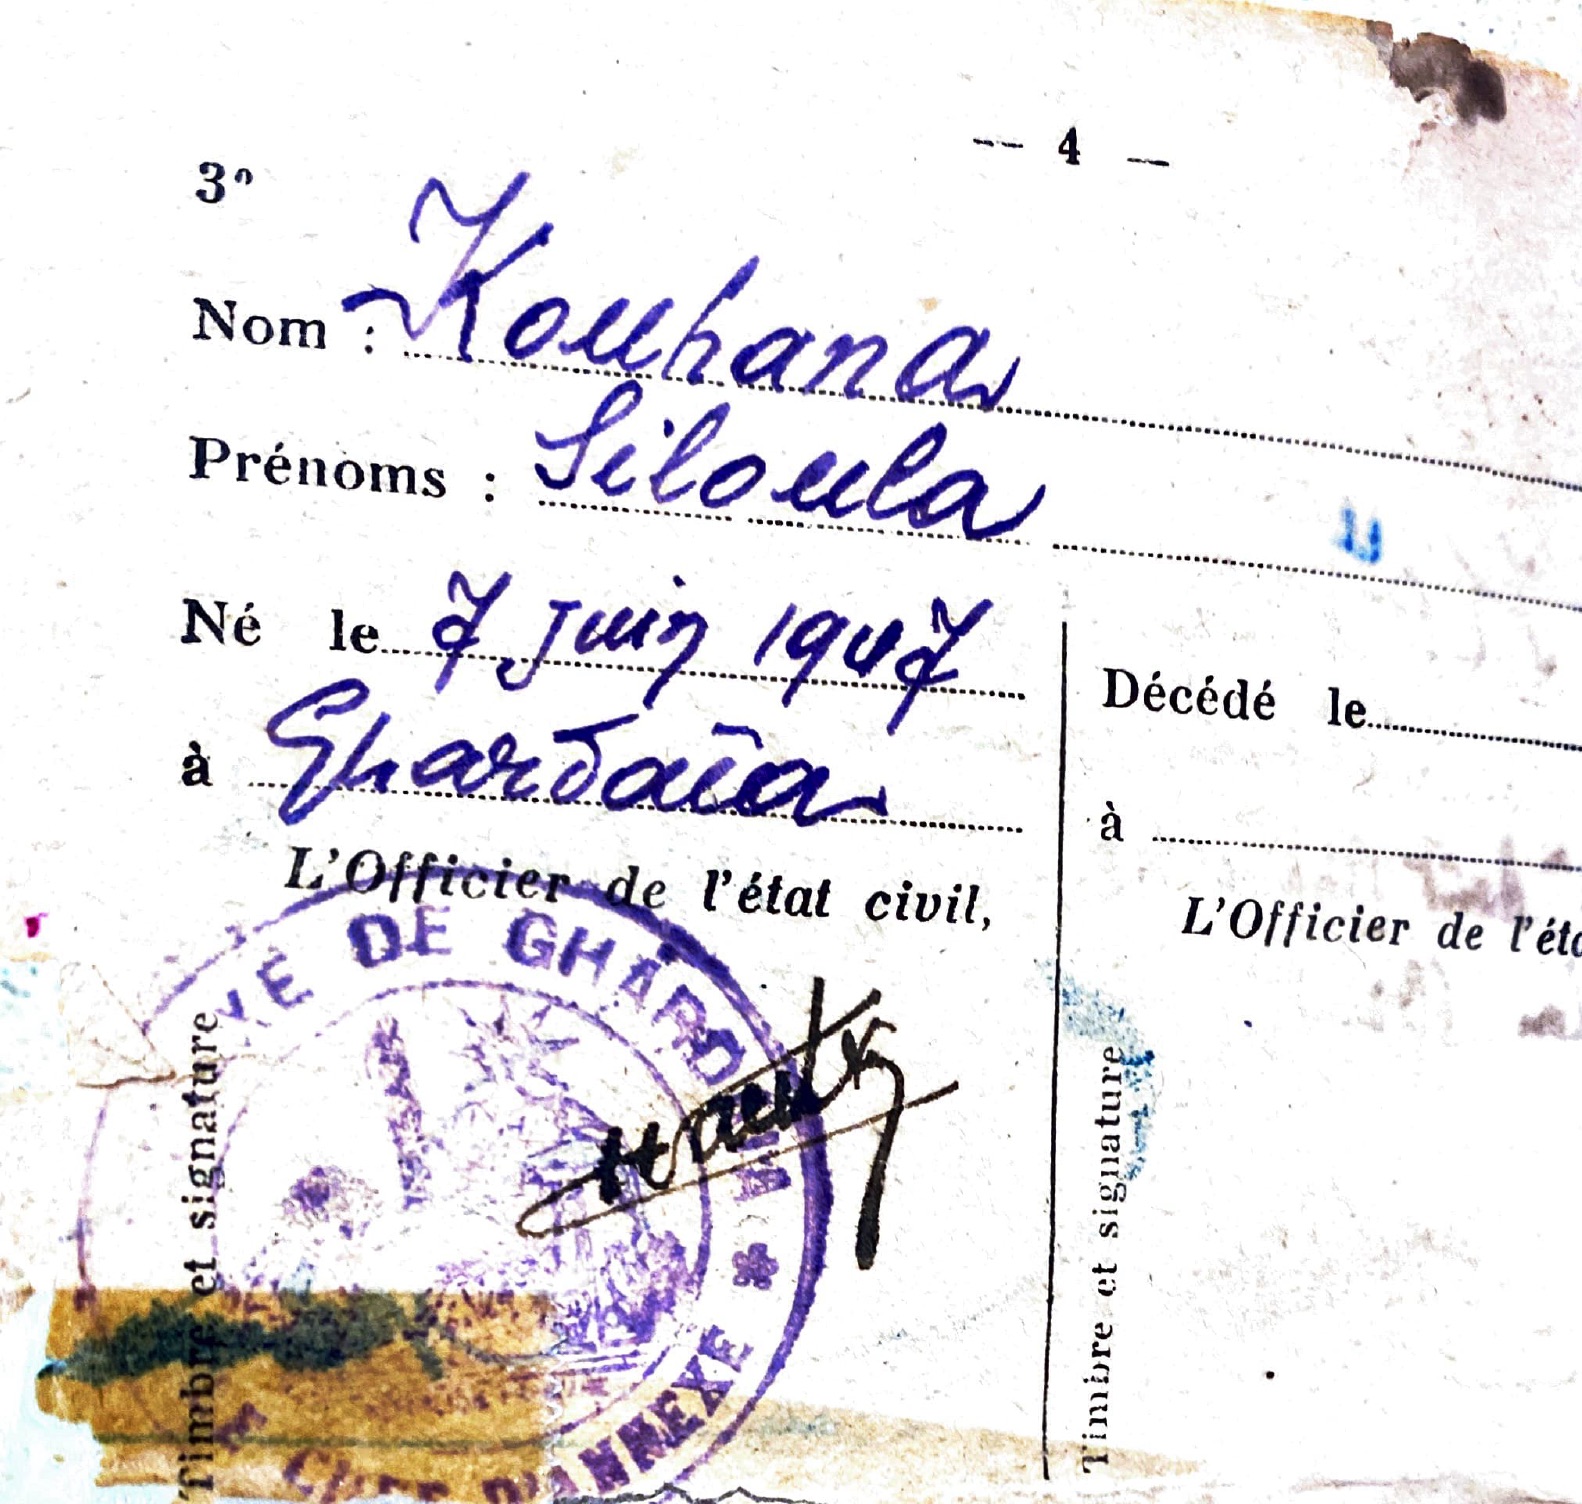 -- 4 --
3°
Nom : Kouhana
Prénoms : Siloula
Né le 7 Juin 1947
à Ghardaïa
L'Officier de l'état civil,
Timbre et signature
DE GHARD
CHEF D'ANNEXE *
Décédé le
à
L'Officier de l'éta
Timbre et signature